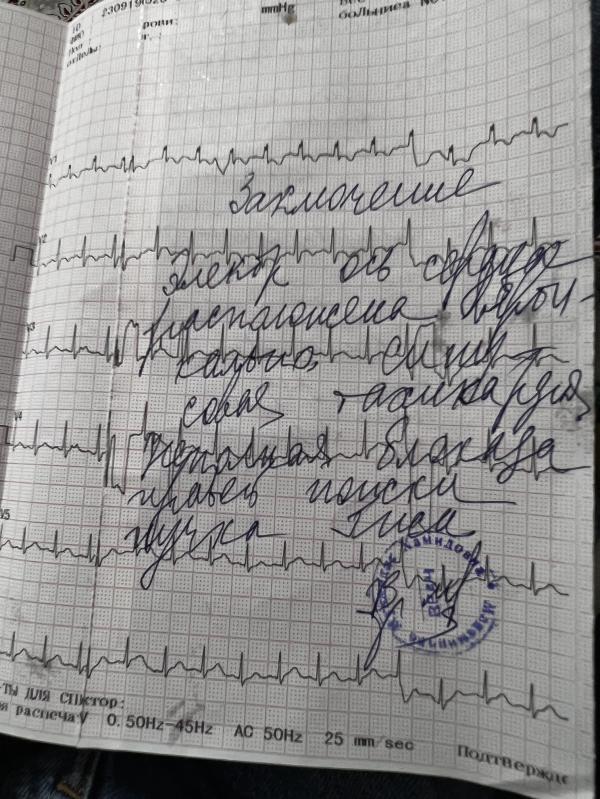 230919
mmHg
рови:
больница No
Ю
ФИО
Пол
отделы:
V1
Заключение
V2
Электр ось сердца
расположена верти-
V3
кально, сину-
совая тахикардия
V4
Неполная блокада
правой ножки
V5
пучка Гиса
Врач
ТЫ ДЛЯ СПК
тор:
я распеча
V
0.50Hz-45Hz AC 50Hz 25 mm/sec
Подтвержде